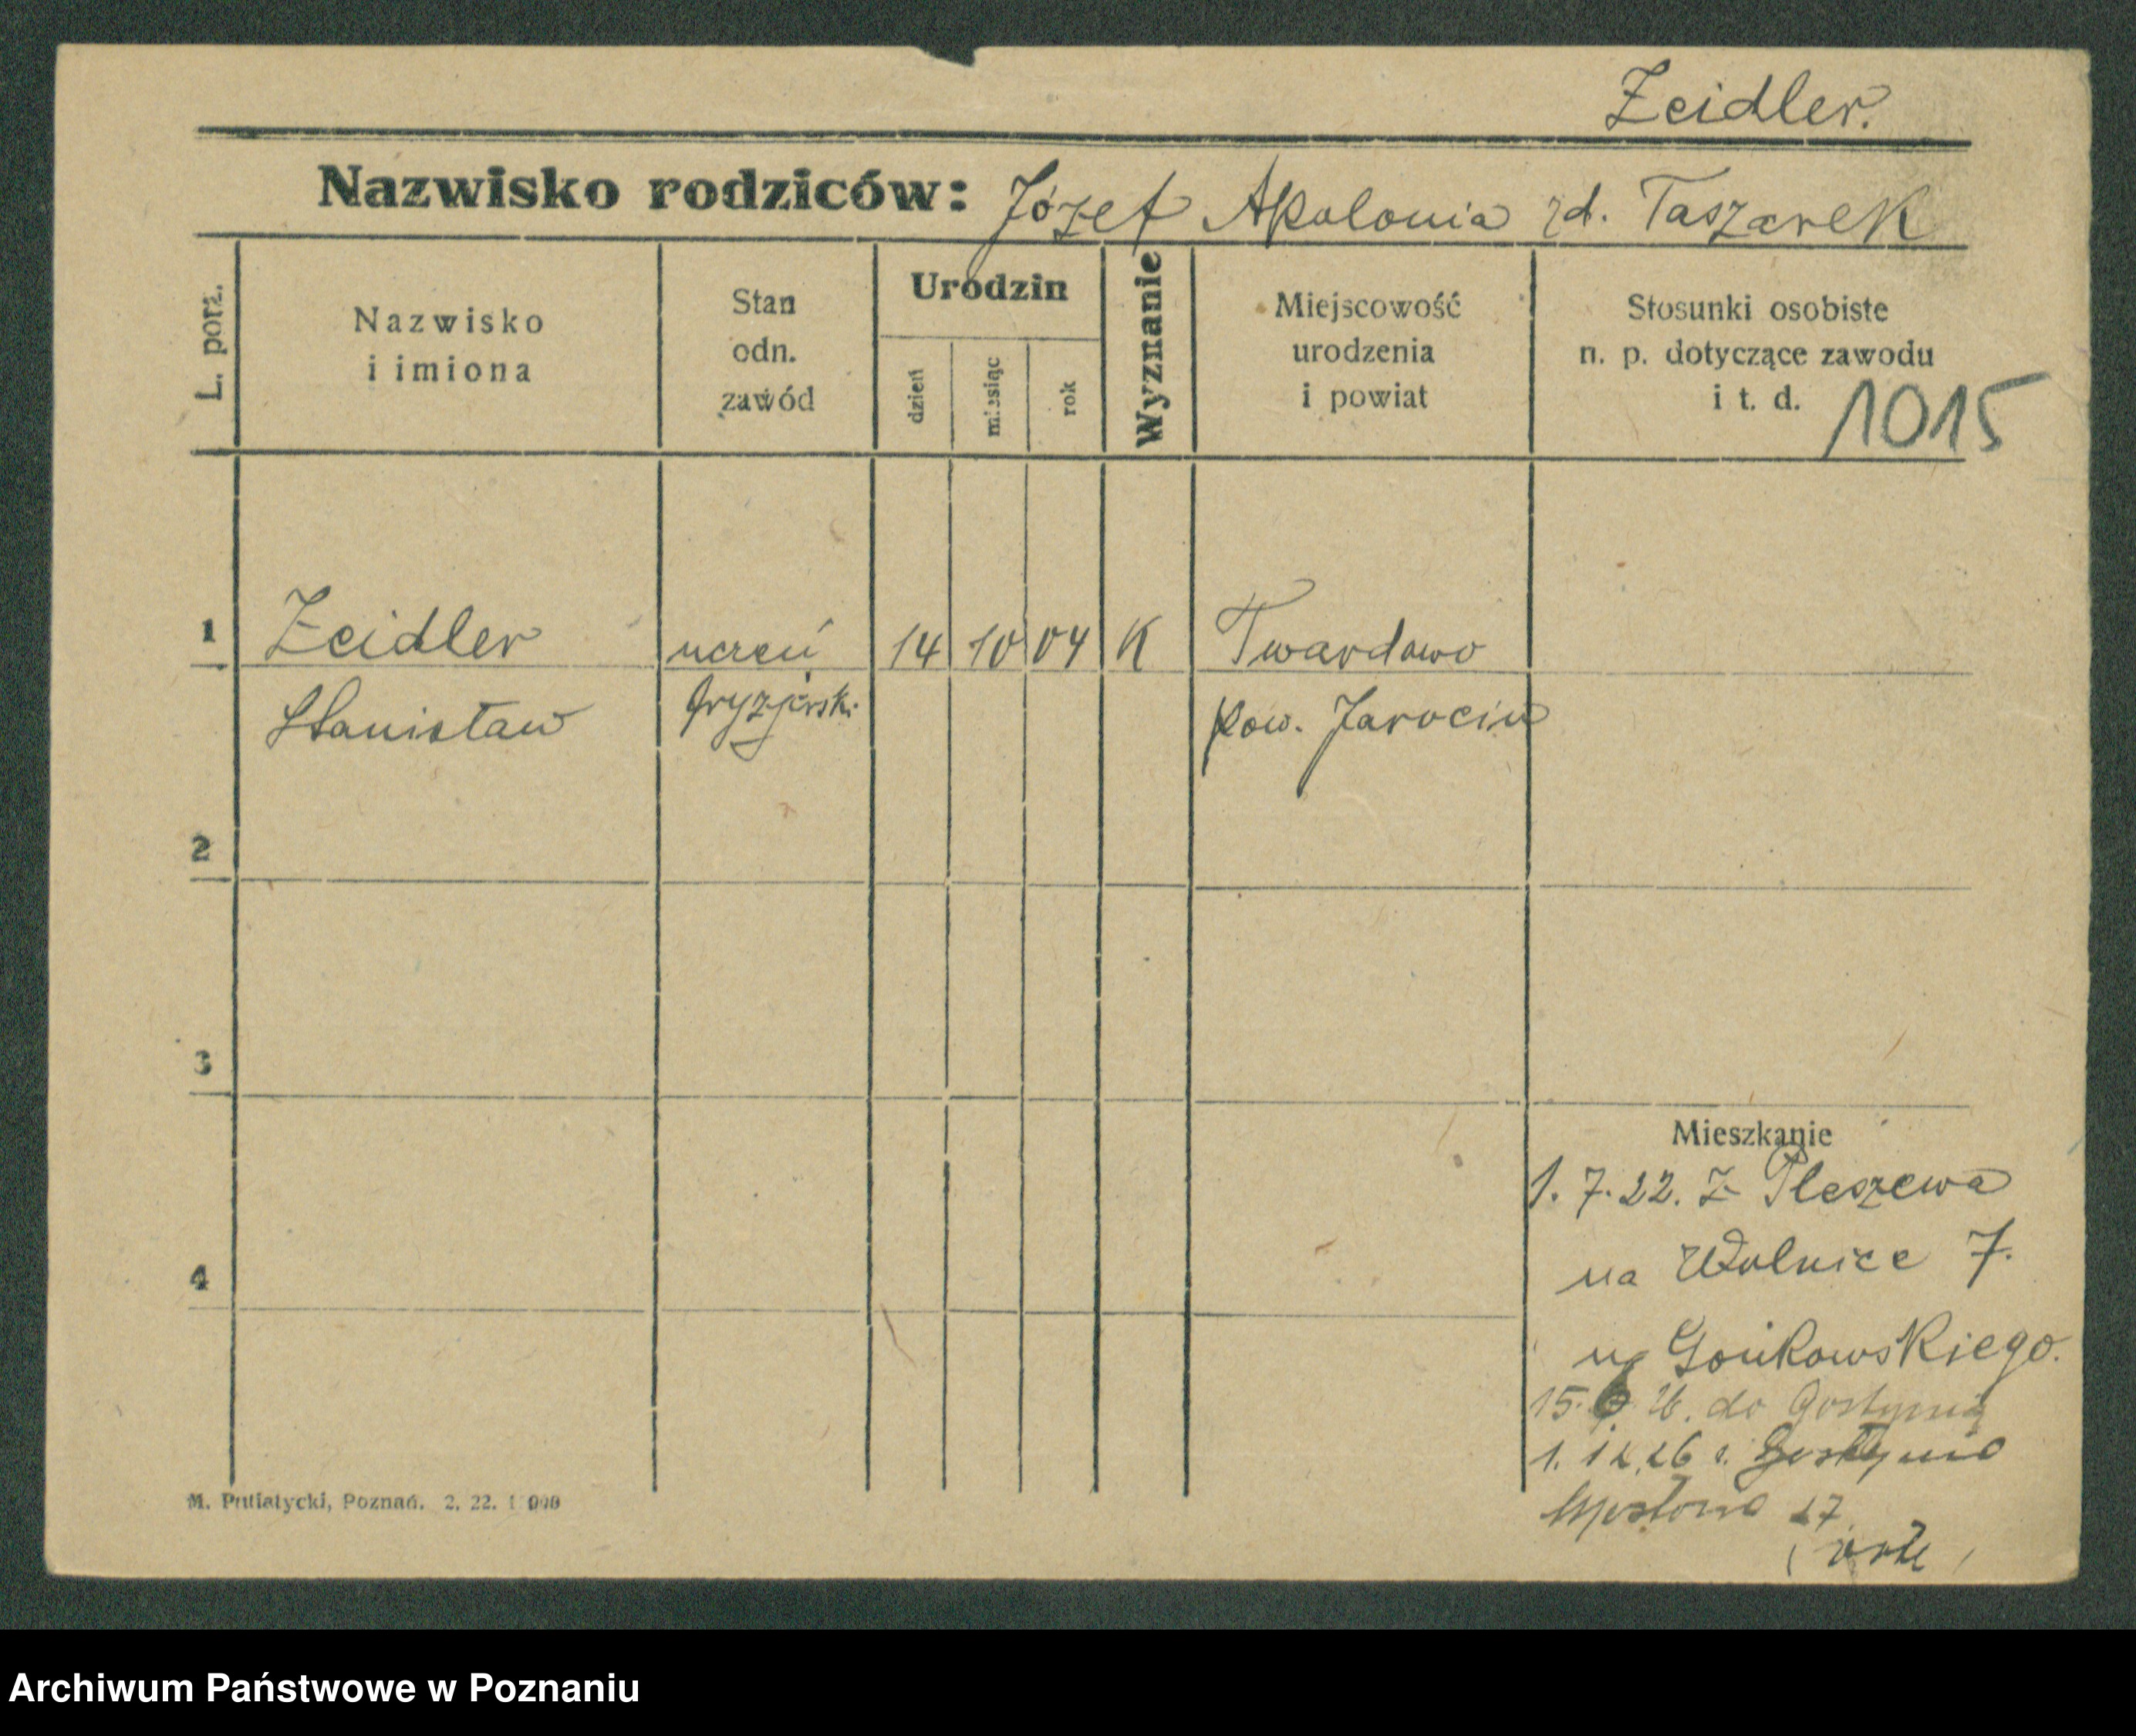 Zeidler.
Nazwisko rodziców: Józef Apolonia zd. Taszarek
L. porz.
Nazwisko
i imiona
Stan
odn.
zawód
Urodzin
dzień
miesiąc
rok
Wyznanie
Miejscowość
urodzenia
i powiat
Stosunki osobiste
n. p. dotyczące zawodu
i t. d.
1015
1 Zeidler uczeń 14 10 04 K Twardowo
Stanisław fryzjerski pow. Jarocin
2
3
4
Mieszkanie
1. 7. 22. z Pleszewa
na Wolnice 7.
u Gońkowskiego.
15. 6 26. do Gostynia
1. 12. 26 z Gostynia
27
M. Putiatycki, Poznań. 2. 22. 1 000
Archiwum Państwowe w Poznaniu